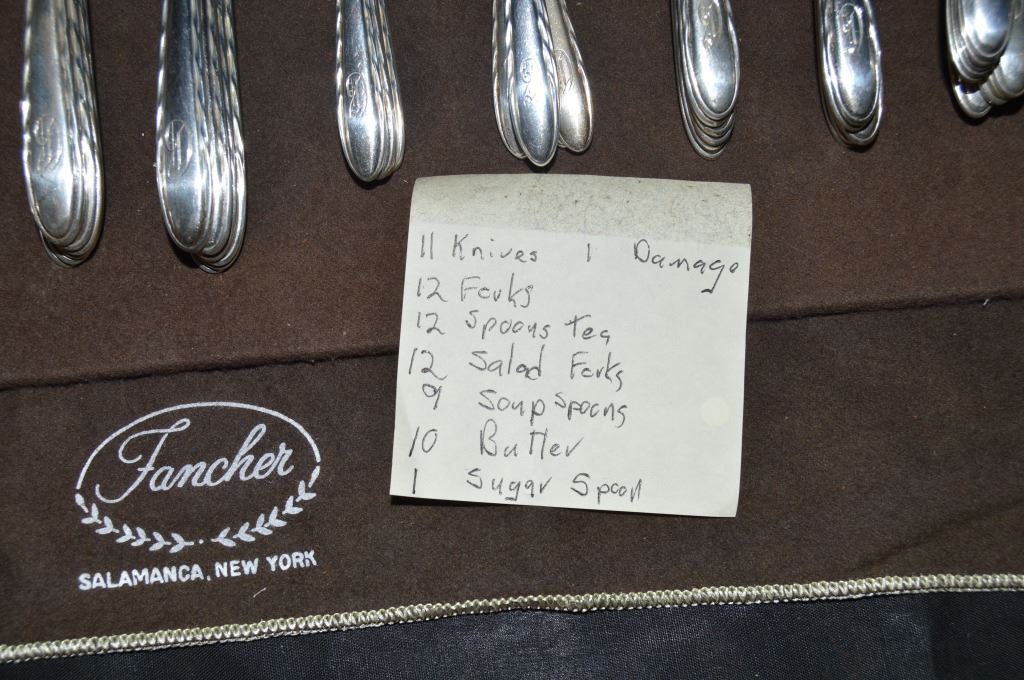 11 Knives 1 Damage
12 Forks
12 Spoons tea
12 Salad Forks
9 Soup Spoons
10 Butter
1 Sugar Spoon
Fancher
SALAMANCA, NEW YORK